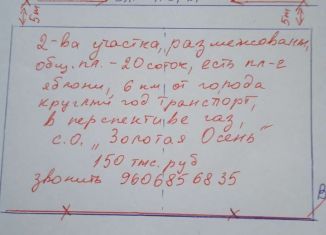 5м
5м
2-ва участка, размежованы,
общ. пл. - 20 соток, есть пл-е
яблони, 6 км от города
круглый год транспорт,
в перспективе газ,
с.о. „Золотая Осень"
150 тыс. руб
звонить 9606856835
В